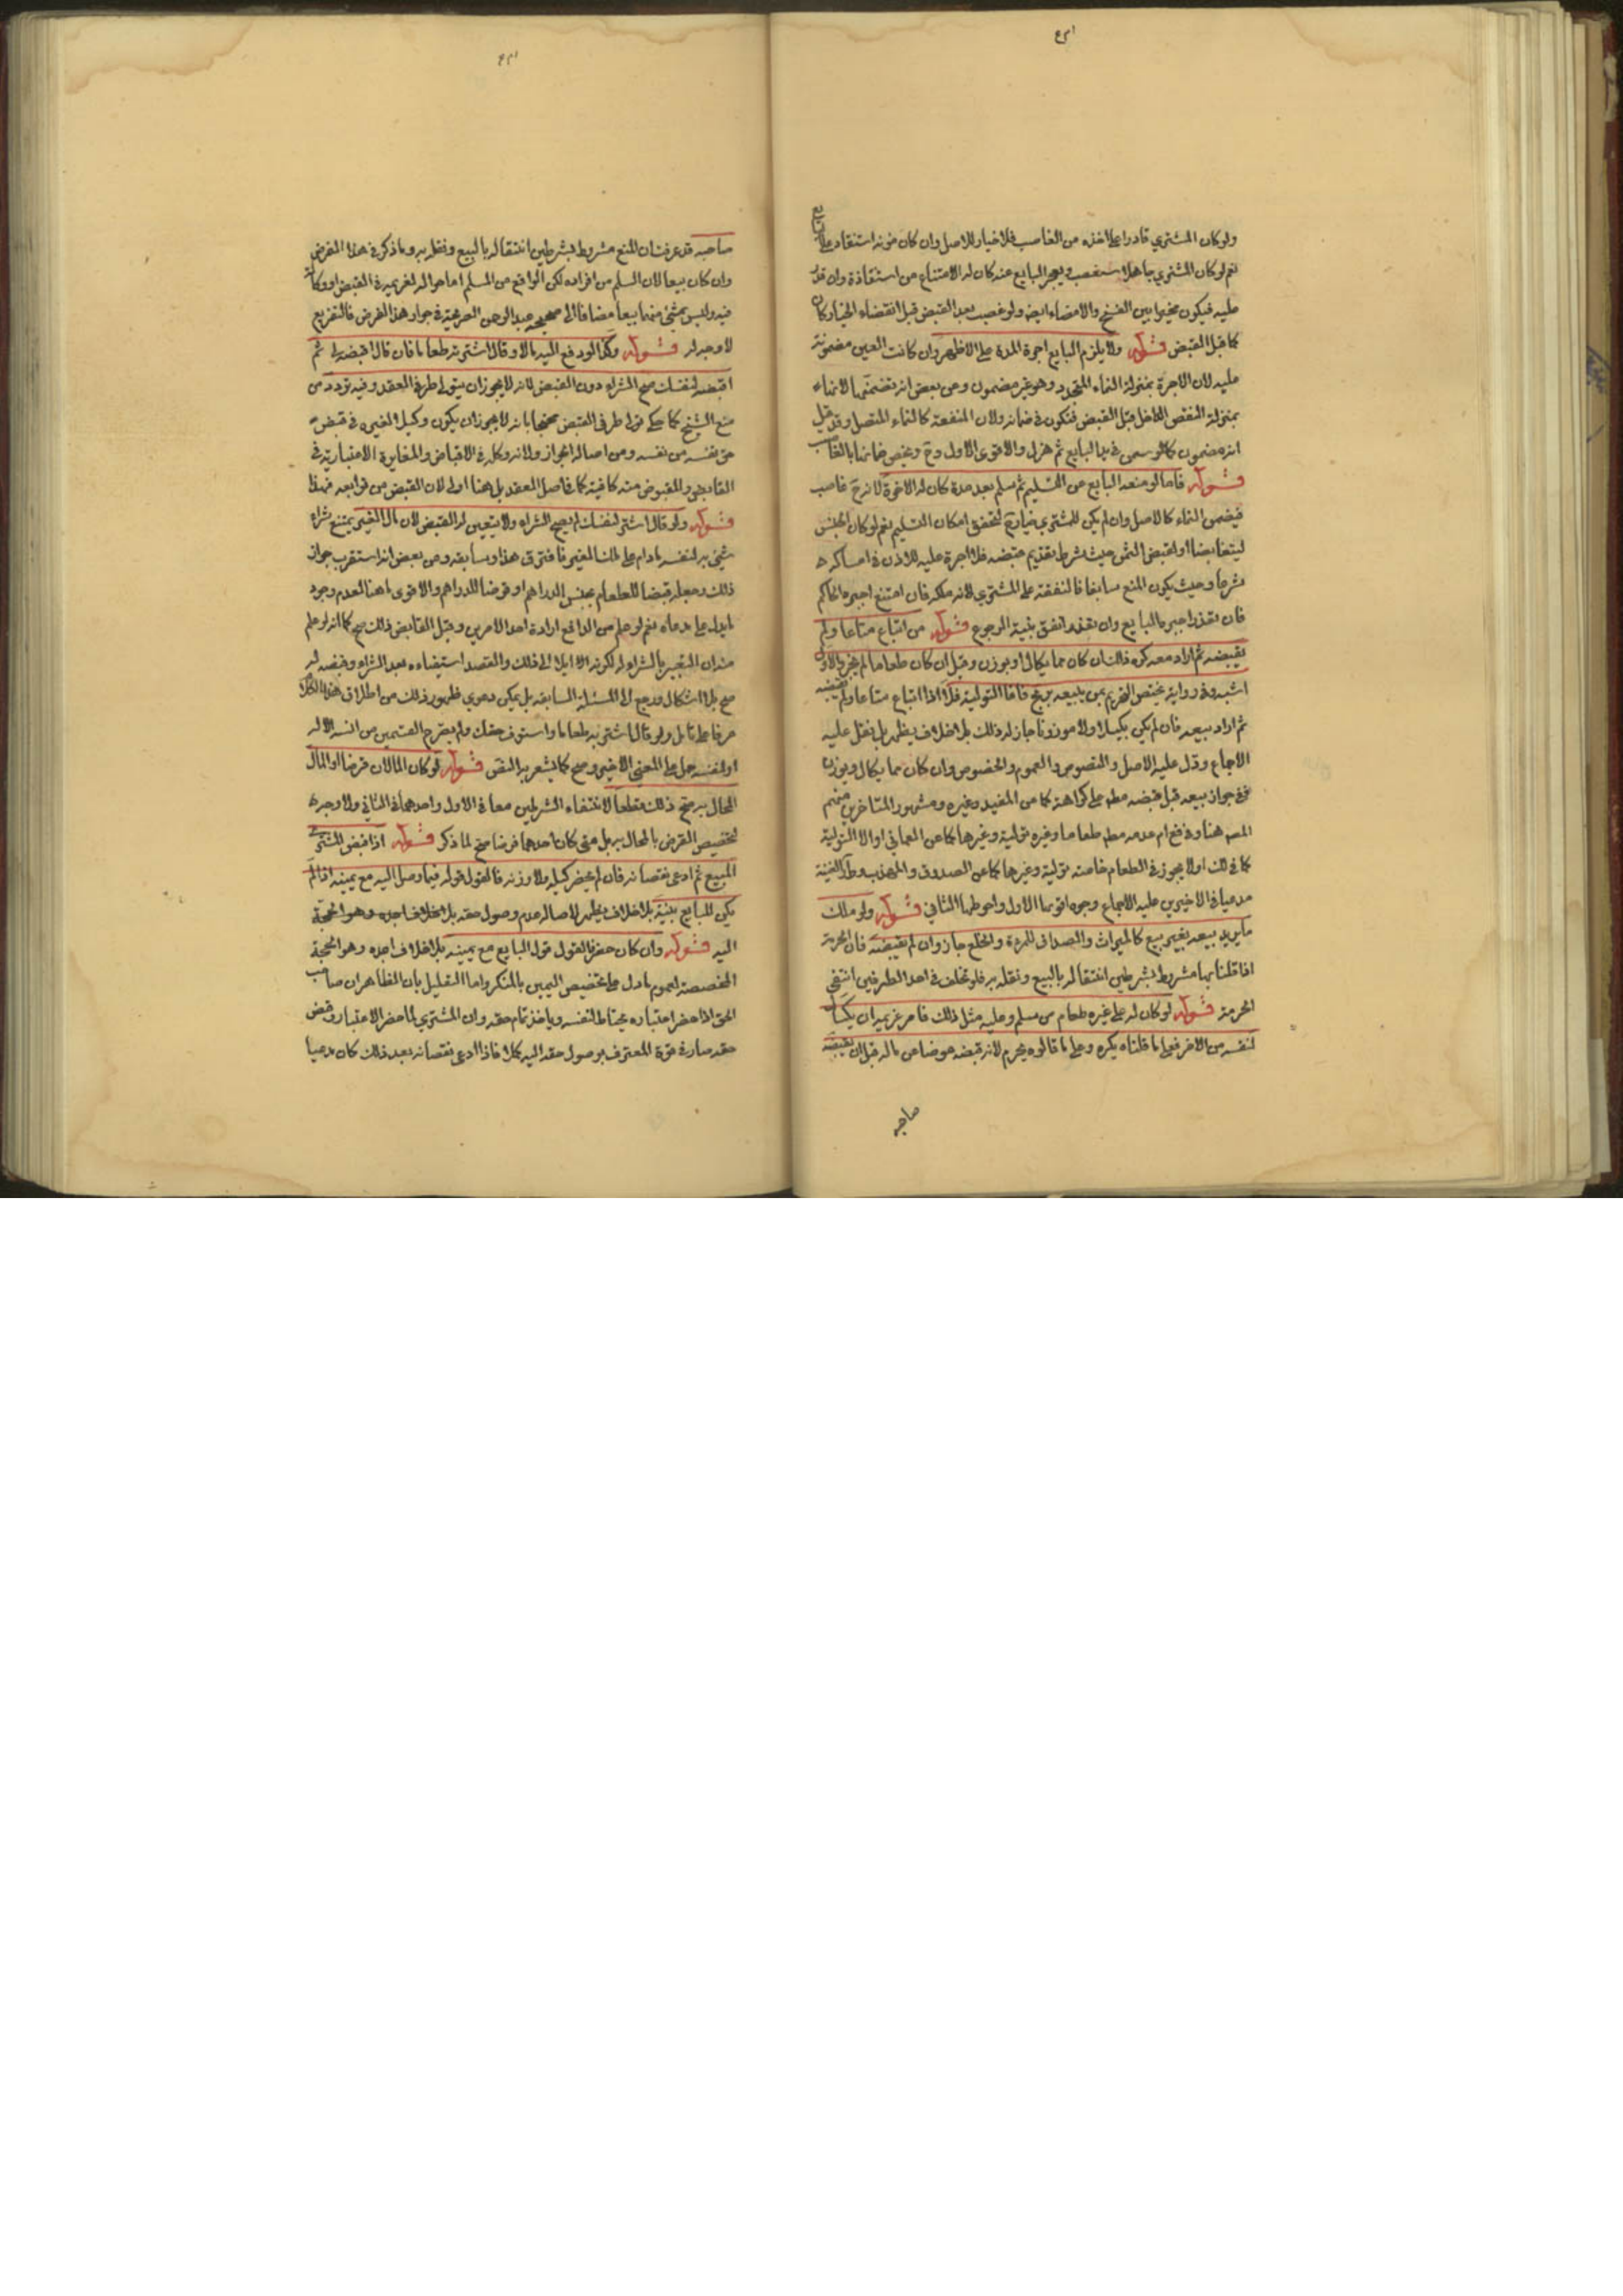 ولو كان المشتري قادرا على اخذه من الغاصب فلا خيار للاصل وان كان مؤنة استنقاذه على البايع
نعم لو كان المشتري جاهلا بغصب وعجز البايع عنه كان له الامتناع من استنقاذه وان قدر
عليه فيكون مخيرا بين الفسخ والامضاء ايضا ولو غصب بعد القبض قبل انقضاء الخيار كان
كما قبل القبض قوله ولا يلزم البايع اجرة المدة على الاظهر وان كانت العين مضمونة
عليه لان الاجرة بمنزلة النماء المتجدد وهو غير مضمون وعن بعض انه تضمنها لانها
بمنزلة النقص الداخل قبل القبض فتكون في ضمانه ولان المنفعة كالنماء المتصل وقد قيل
انه مضمون كما لو سمن في يد البايع ثم هزل والاقوى الاول وح ويختص ضمانها بالغاصب
قوله فاما لو منعه البايع عن التسليم ثم سلم بعد مدة كان له الاجرة لانه ح غاصب
فيضمن النماء كالاصل وان لم يكن للمشتري خيار ح لتحقق امكان التسليم نعم لو كان الحبس
ليتقابضا او لقبض الثمن حيث شرط تقديم قبضه فلا اجرة عليه للاذن في امساكه
شرعا وحيث يكون المنع سابغا فالنفقة على المشتري لانه ملكه فان امتنع اجبره الحاكم
فان تعذر اجبر البايع وان تعذر انفق بنية الرجوع قوله من ابتاع متاعا ولم
يقبضه ثم اراد بيعه كره ذلك ان كان مما يكال او يوزن وقيل ان كان طعاما لم يجز والاول
اشبه وفي رواية يختص التحريم بمن يبيعه بربح فاما التولية فلا اذا ابتاع متاعا ولم يقبضه
ثم اراد بيعه فان لم يكن مكيلا ولا موزونا جاز له ذلك بلا خلاف يظهر بل نقل عليه
الاجماع ودل عليه الاصل والنصوص والعموم والخصوص وان كان مما يكال ويوزن
ففي جواز بيعه قبل قبضه مطم على كراهة كما عن المفيد وغيره ومشهور المتاخرين منهم
المصه هنا وفي فع ام عدمه مطم طعاما وغيره تولية وغيرها كما عن العماني او الا التولية
كما في لك او لا يجوز في الطعام خاصة تولية وغيرها كما عن الصدوق والمهذب وط الغنية
مدعيا في الاخيرين عليه الاجماع وجوه اقويها الاول واحوطها الثاني قوله ولو ملك
ما يريد بيعه بغير بيع كالميراث والصداق للمرءة والخلع جاز وان لم يقبضه فان الحرمة
اذا قلنا بها مشروط بشرطين انتقاله بالبيع ونقله به فلو تخلف في احد الطرفين انتفى
الحرمة قوله لو كان له على غيره طعام من سلم وعليه مثل ذلك فامر غريمه ان يكتال
لنفسه من الاخر فعلى ما قلناه يكره وعلى ما قالوه يحرم لانه قبضه عوضا عن ماله قبل ان يقبضه
صاحبه
صاحبه قد عرفت ان المنع مشروط بشرطين انتقاله بالبيع ونقله به وما ذكر في هذا الفرض
وان كان بيعا لان السلم من افراده لكن الواقع من المسلم اما حوالة لغريمه في القبض او وكالة
فيه وليس شيئ منهما بيعا مضافا الى صحيحة عبد الرحمن الصريحة في جواز هذا الفرض فالتفريع
لا وجه له قوله وكذا لو دفع اليه مالا وقال اشتر به طعاما فان قال اقبضه لي ثم
اقبضه لنفسك صح الشراء دون القبض لانه لا يجوز ان يتولى طرفي العقد وفيه تردد من
منع الشيخ كما حكي تولى طرفي القبض محتجا بانه لا يجوز ان يكون وكيلا لغيره في قبض
حق نفسه من نفسه ومن اصالة الجواز ولانه وكله في الاقباض والمغايرة الاعتبارية في
القابض والمقبوض منه كافية كما في اصل العقد بل هنا اولى لان القبض من توابعه فهذا
قوله ولو قال اشتر لنفسك لم يصح الشراء ولا يتعين له القبض لان مال الغير يمتنع شراء
شيئ به لنفسه مادام على ملك الغير فافترق هذا وسابقه وعن بعض انه استقرب جواز
ذلك وجعله قبضا للطعام بجنس الدراهم او قرضا للدراهم والاقوى ما هنا لعدم وجود
ما يدل على مدعاه نعم لو علم من الدافع ارادة احد الامرين وقبل القابض ذلك صح كما انه لو علم
منه ان التعبير بالشراء له لكونه الا ايلا الى ذلك والقصد استيفاءه بعد الشراء وقبضه له
صح بلا اشكال ورجع الى المسئلة السابقة بل يمكن دعوى ظهور ذلك من اطلاق هذا الكلام
عرفا على تامل ولو قال اشتر به طعاما واستوف حقك ولم يصرح القسمين من انه له
او لنفسه حمل على المعنى الاخير وصح كما يشعر به النص قوله لو كان المالان قرضا او المال
المحال به صح ذلك قطعا لانتفاء الشرطين معا في الاول واحدهما في الثاني ولا وجه
لتخصيص القرض بالمحال به بل متى كان احدهما قرضا صح لما ذكر قوله اذا قبض المشتري
المبيع ثم ادعى نقصانه فان لم يحضر كيله ولا وزنه فالقول قوله فيما وصل اليه مع يمينه اذا لم
يكن للبايع بينة بلا خلاف يظهر لاصالة عدم وصول حقه بلا خلاف اجده وهو الحجة
اليه قوله وان كان حضر فالقول قول البايع مع يمينه بلا خلاف اجده وهو الحجة
المخصصة لعموم ما دل على تخصيص اليمين بالمنكر واما التعليل بان الظاهر ان صاحب
الحق اذا حضر اعتباره يحتاط لنفسه وياخذ تمام حقه وان المشتري لما حضر الاعتبار وقبض
حقه صار في قوة المعترف بوصول حقه اليه كملا فاذا ادعى نقصانه بعد ذلك كان مدعيا